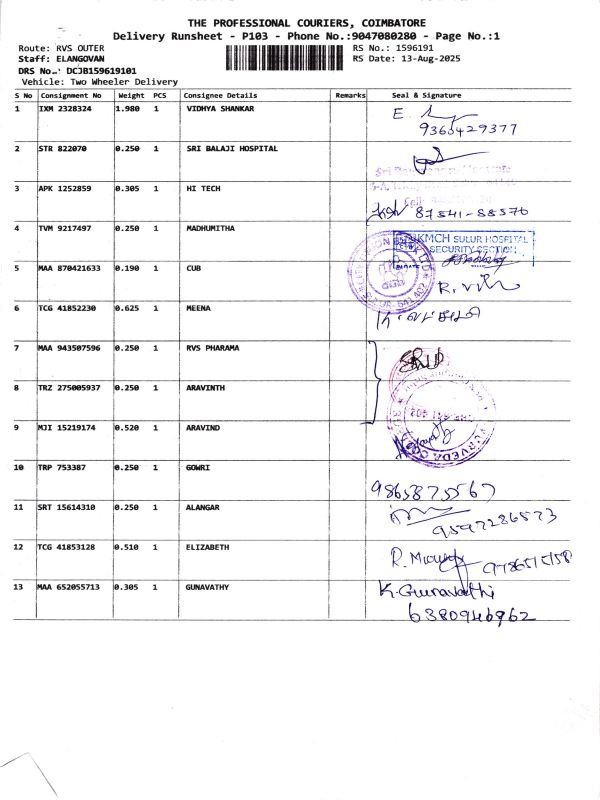 THE PROFESSIONAL COURIERS, COIMBATORE
Delivery Runsheet - P103 - Phone No.:9047080280 - Page No.:1
Route: RVS OUTER
RS No.: 1596191
Staff: ELANGOVAN
RS Date: 13-Aug-2025
DRS No.: DCJB159619101
Vehicle: Two Wheeler Delivery
S No Consignment No Weight PCS Consignee Details Remarks Seal & Signature
1 IXM 2328324 1.980 1 VIDHYA SHANKAR
9360429377
2 STR 822070 0.250 1 SRI BALAJI HOSPITAL
3 APK 1252859 0.305 1 HI TECH
87541-88570
4 TVM 9217497 0.250 1 MADHUMITHA
KMCH SULUR HOSPITAL
SECURITY SECTION
5 MAA 870421633 0.190 1 CUB
6 TCG 41852230 0.625 1 MEENA
7 MAA 943507596 0.250 1 RVS PHARAMA
8 TRZ 275005937 0.250 1 ARAVINTH
9 MJI 15219174 0.520 1 ARAVIND
10 TRP 753387 0.250 1 GOWRI
9865875567
11 SRT 15614310 0.250 1 ALANGAR
9597286573
12 TCG 41853128 0.510 1 ELIZABETH
13 MAA 652055713 0.305 1 GUNAVATHY
K.Gunavathi
6380946962